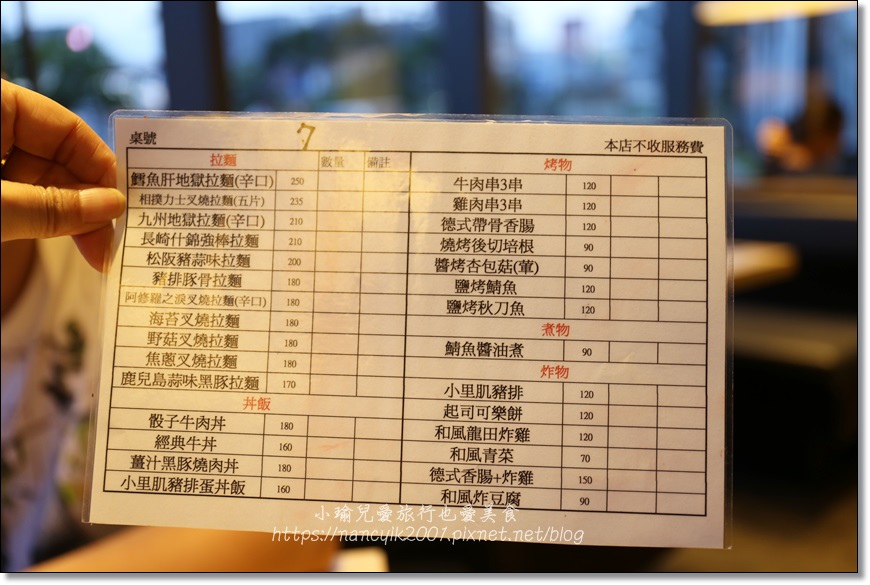 桌號 7 本店不收服務費
拉麵 數量 備註
鱈魚肝地獄拉麵(辛口) 250
相撲力士叉燒拉麵(五片) 235
九州地獄拉麵(辛口) 210
長崎什錦強棒拉麵 210
松阪豬蒜味拉麵 200
豬排豚骨拉麵 180
阿修羅之淚叉燒拉麵(辛口) 180
海苔叉燒拉麵 180
野菇叉燒拉麵 180
焦蔥叉燒拉麵 180
鹿兒島蒜味黑豚拉麵 170
丼飯
骰子牛肉丼 180
經典牛丼 160
薑汁黑豚燒肉丼 180
小里肌豬排蛋丼飯 160
烤物
牛肉串3串 120
雞肉串3串 120
德式帶骨香腸 120
燒烤後切培根 90
醬烤杏包菇(葷) 90
鹽烤鯖魚 120
鹽烤秋刀魚 120
煮物
鯖魚醬油煮 90
炸物
小里肌豬排 120
起司可樂餅 120
和風龍田炸雞 120
和風青菜 70
德式香腸+炸雞 150
和風炸豆腐 90
小瑜兒愛旅行也愛美食
https://nancyik2001.pixnet.net/blog